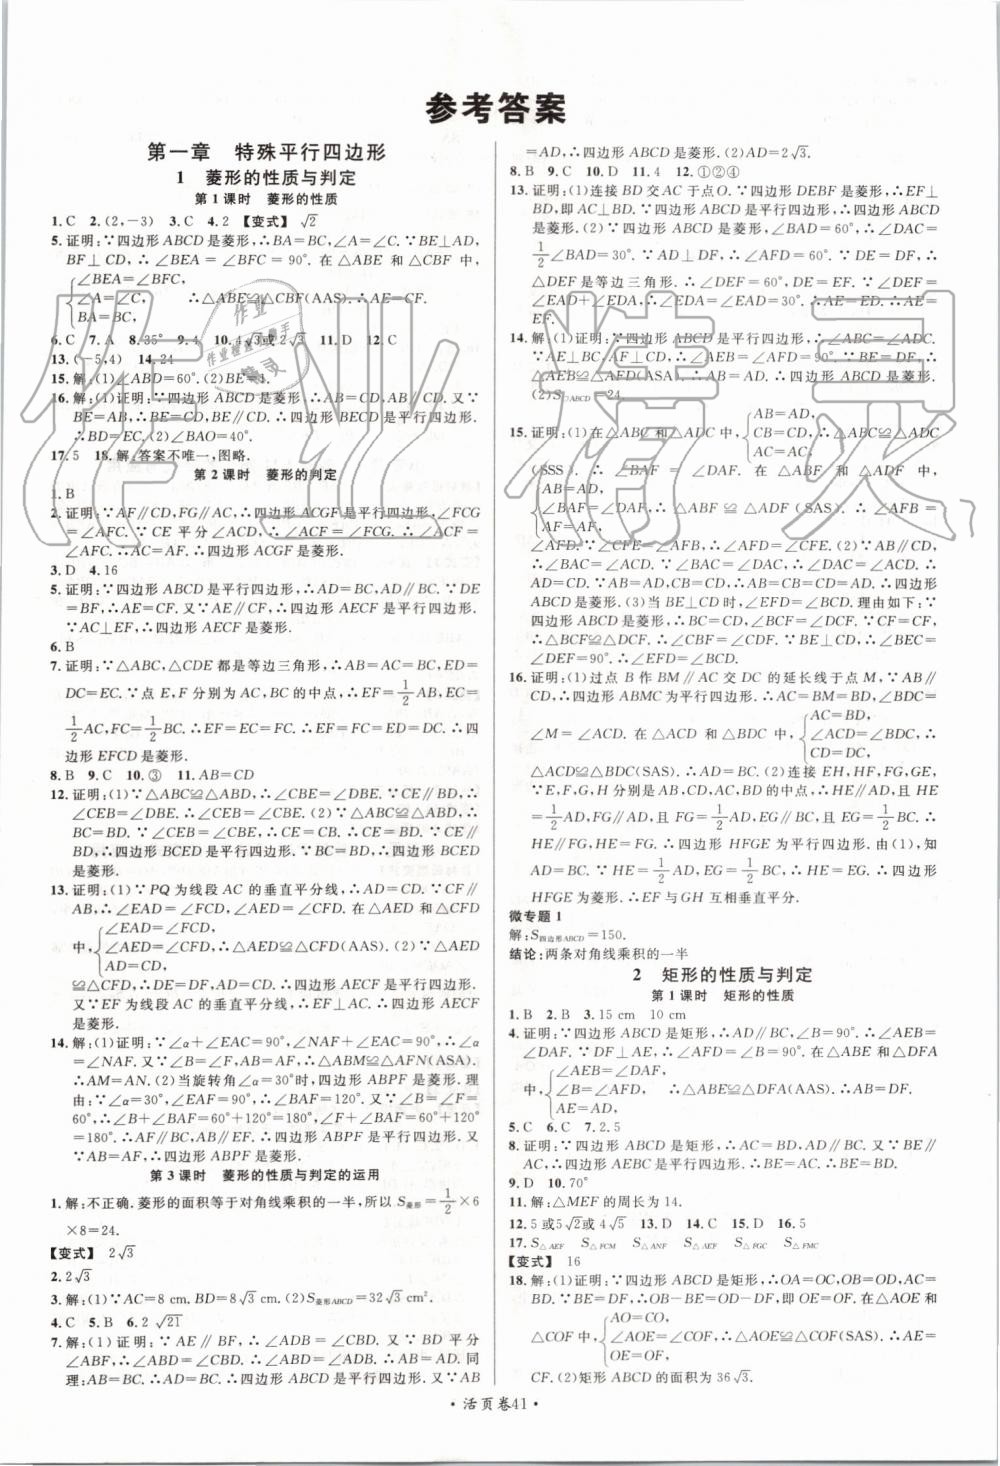 参考答案
第一章 特殊平行四边形
1 菱形的性质与判定
第1课时 菱形的性质
1.C 2.(2,-3) 3.C 4.2 【变式】 √2
5.证明:∵四边形ABCD是菱形,∴BA=BC,∠A=∠C.∵BE⊥AD,
BF⊥CD,∴∠BEA=∠BFC=90°.在△ABE和△CBF中,
{∠BEA=∠BFC,
∠A=∠C, ∴△ABE≌△CBF(AAS).∴AE=CF.
BA=BC,
6.C 7.A 8.35° 9.4 10.4√3或2√3 11.D 12.C
13.(-5,4) 14.24
15.解:(1)∠ABD=60°.(2)BE=1.
16.解:(1)证明:∵四边形ABCD是菱形,∴AB=CD,AB∥CD.又∵
BE=AB,∴BE=CD,BE∥CD.∴四边形BECD是平行四边形.
∴BD=EC.(2)∠BAO=40°.
17.5 18.解:答案不唯一,图略.
第2课时 菱形的判定
1.B
2.证明:∵AF∥CD,FG∥AC,∴四边形ACGF是平行四边形,∠FCG
=∠AFC.∵CE平分∠ACD,∴∠ACF=∠FCG.∴∠ACF=
∠AFC.∴AC=AF.∴四边形ACGF是菱形.
3.D 4.16
5.证明:∵四边形ABCD是平行四边形,∴AD=BC,AD∥BC.∵DE
=BF,∴AE=CF.又∵AE∥CF,∴四边形AECF是平行四边形.
∵AC⊥EF,∴四边形AECF是菱形.
6.B
7.证明:∵△ABC,△CDE都是等边三角形,∴AB=AC=BC,ED=
DC=EC.∵点E,F分别为AC,BC的中点,∴EF=1/2AB,EC=
1/2AC,FC=1/2BC.∴EF=EC=FC.∴EF=FC=ED=DC.∴四
边形EFCD是菱形.
8.B 9.C 10.③ 11.AB=CD
12.证明:(1)∵△ABC≌△ABD,∴∠CBE=∠DBE.∵CE∥BD,∴
∠CEB=∠DBE.∴∠CEB=∠CBE.(2)∵△ABC≌△ABD,∴
BC=BD.∵∠CEB=∠CBE,∴CE=CB.∴CE=BD.∵CE∥
BD,∴四边形BCED是平行四边形.∵BC=BD,∴四边形BCED
是菱形.
13.证明:(1)∵PQ为线段AC的垂直平分线,∴AD=CD.∵CF∥
AB,∴∠EAD=∠FCD,∠AED=∠CFD.在△AED和△CFD
{∠EAD=∠FCD,
中, ∠AED=∠CFD,∴△AED≌△CFD(AAS).(2)∵△AED
AD=CD,
≌△CFD,∴DE=DF.∵AD=CD,∴四边形AECF是平行四边形.
又∵EF为线段AC的垂直平分线,∴EF⊥AC.∴四边形AECF
是菱形.
14.解:(1)证明:∵∠α+∠EAC=90°,∠NAF+∠EAC=90°,∴∠α
=∠NAF.又∵∠B=∠F,AB=AF,∴△ABM≌△AFN(ASA).
∴AM=AN.(2)当旋转角∠α=30°时,四边形ABPF是菱形.理
由:∵∠α=30°,∠EAF=90°,∴∠BAF=120°.又∵∠B=∠F=
60°,∴∠B+∠BAF=60°+120°=180°,∠F+∠BAF=60°+120°
=180°.∴AF∥BC,AB∥EF.∴四边形ABPF是平行四边形.又
∵AB=AF,∴四边形ABPF是菱形.
第3课时 菱形的性质与判定的运用
1.解:不正确.菱形的面积等于对角线乘积的一半,所以S菱形=1/2×6
×8=24.
【变式】 2√3
2.2√3
3.解:(1)∵AC=8 cm.BD=8√3 cm.(2)S菱形ABCD=32√3 cm².
4.C 5.B 6.2√21
7.解:(1)证明:∵AE∥BF,∴∠ADB=∠CBD.又∵BD平分
∠ABF,∴∠ABD=∠CBD.∴∠ABD=∠ADB.∴AB=AD.同
理:AB=BC,∴AD=BC.∴四边形ABCD是平行四边形.又∵AB
=AD,∴四边形ABCD是菱形.(2)AD=2√3.
8.B 9.C 10.D 11.4 12.①②④
13.证明:(1)连接BD交AC于点O.∵四边形DEBF是菱形,∴EF⊥
BD,即AC⊥BD.又∵四边形ABCD是平行四边形,∴四边形ABCD
是菱形.(2)∵四边形ABCD是菱形,∠BAD=60°,∴∠DAC=
1/2∠BAD=30°.∵AD⊥DF,∴∠AFD=60°.∵DE=DF,∴
△DEF是等边三角形.∴∠DEF=60°,DE=EF.∵∠DEF=
∠EAD+∠EDA,∴∠EAD=∠EDA=30°.∴AE=DE.∴AE=
EF.
14.解:(1)证明:∵四边形ABCD是平行四边形,∴∠ABC=∠ADF.
∵AE⊥BC,AF⊥CD,∴∠AEB=∠AFD=90°.∵BE=DF,∴
△AEB≌△AFD(ASA).∴AB=AD.∴四边形ABCD是菱形.
(2)S▱ABCD=24.
{AB=AD,
15.证明:(1)在△ABC和△ADC中, CB=CD,∴△ABC≌△ADC
AC=AC.
(SSS).∴∠BAF=∠DAF.在△ABF和△ADF中,
{AB=AD,
∠BAF=∠DAF,∴△ABF≌△ADF(SAS).∴∠AFB=
AF=AF,
∠AFD.∵∠CFE=∠AFB,∴∠AFD=∠CFE.(2)∵AB∥CD,
∴∠BAC=∠ACD.∵∠BAC=∠DAC,∴∠DAC=∠ACD.∴
AD=CD.∵AB=AD,CB=CD,∴AB=CB=CD=AD.∴四边形
ABCD是菱形.(3)当BE⊥CD时,∠EFD=∠BCD.理由如下:∵
四边形ABCD是菱形,∴BC=CD,∠BCF=∠DCF.∵CF=CF,
∴△BCF≌△DCF.∴∠CBF=∠CDF.∵BE⊥CD,∴∠BEC=
∠DEF=90°.∴∠EFD=∠BCD.
16.证明:(1)过点B作BM∥AC交DC的延长线于点M,∵AB∥
CD,∴四边形ABMC为平行四边形.∴AC=BM=BD,∠BDC=
{AC=BD,
∠M=∠ACD.在△ACD和△BDC中, ∠ACD=∠BDC,∴
CD=CD,
△ACD≌△BDC(SAS).∴AD=BC.(2)连接EH,HF,FG,GE,
∵E,F,G,H分别是AB,CD,AC,BD的中点,∴HE∥AD,且HE
=1/2AD,FG∥AD,且FG=1/2AD,EG∥BC,且EG=1/2BC.∴
HE∥FG,HE=FG.∴四边形HFGE为平行四边形.由(1),知
AD=BC.又∵HE=1/2AD,EG=1/2BC,∴HE=EG.∴四边形
HFGE为菱形.∴EF与GH互相垂直平分.
微专题1
解:S四边形ABCD=150.
结论:两条对角线乘积的一半
2 矩形的性质与判定
第1课时 矩形的性质
1.B 2.B 3.15 cm 10 cm
4.证明:∵四边形ABCD是矩形,∴AD∥BC,∠B=90°.∴∠AEB=
∠DAF.∵DF⊥AE,∴∠AFD=90°.在△ABE和△DFA
{∠AEB=∠DAF,
中, ∠B=∠AFD, ∴△ABE≌△DFA(AAS).∴AB=DF.
AE=AD,
5.C 6.C 7.2.5
8.证明:∵四边形ABCD是矩形,∴AC=BD,AD∥BC.又∵BE∥
AC,∴四边形AEBC是平行四边形.∴BE=AC.∴BE=BD.
9.D 10.70°
11.解:△MEF的周长为14.
12.5或5√2或4√5 13.D 14.C 15.D 16.5
17.S△AEF S△FCM S△ANF S△AEF S△FGC S△FMC
【变式】 16
18.解:(1)证明:∵四边形ABCD是矩形,∴OA=OC,OB=OD,AC=
BD.∵BE=DF,∴OB-BE=OD-DF,即OE=OF.在△AOE和
{AO=CO,
△COF中, ∠AOE=∠COF,∴△AOE≌△COF(SAS).∴AE=
OE=OF,
CF.(2)矩形ABCD的面积为36√3.
·活页卷41·